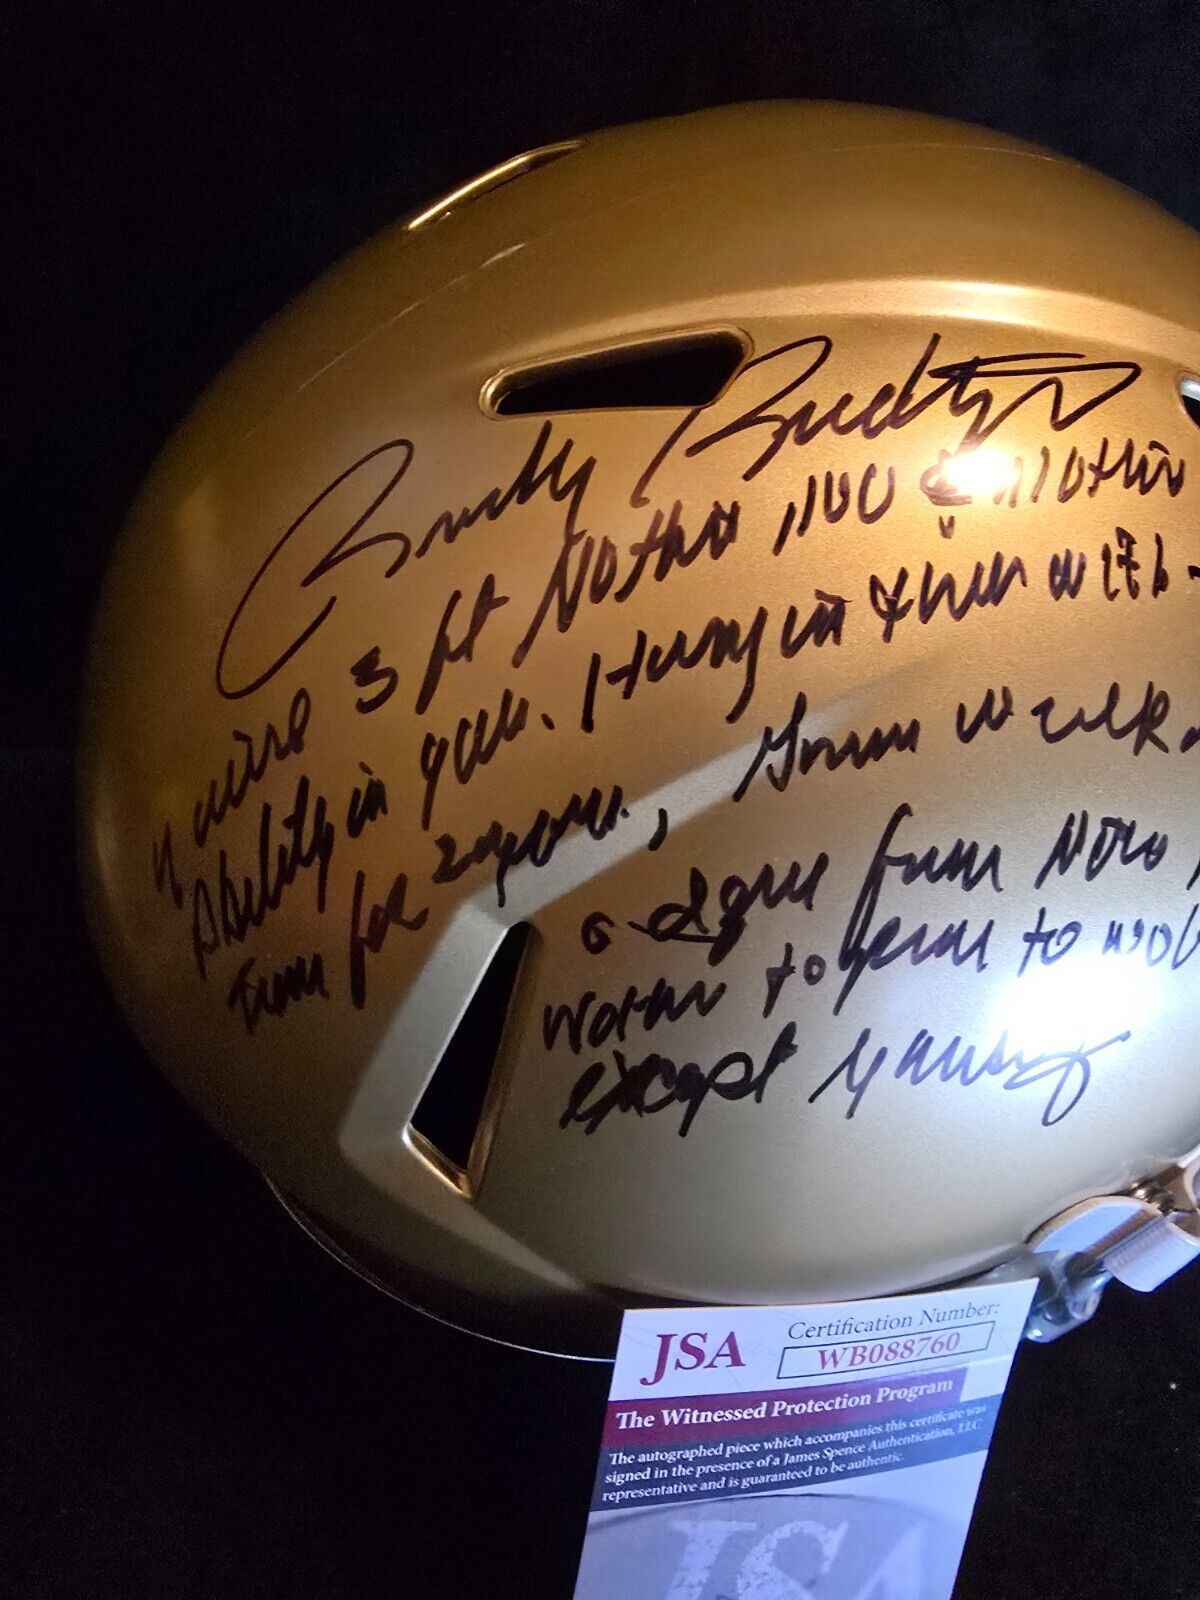 Rudy Ruettiger
u were 5 ft Nothin 100 & Nothin
Ability in you. Hung in there with
Team for 2 years, Gonna walk
a degree from Notre
Notta to prove to nob
except yourself
JSA
Certification Number:
WB088760
The Witnessed Protection Program
The autographed piece which accompanies this certificate was
signed in the presence of a James Spence Authentication, LLC
representative and is guaranteed to be authentic.
JSA